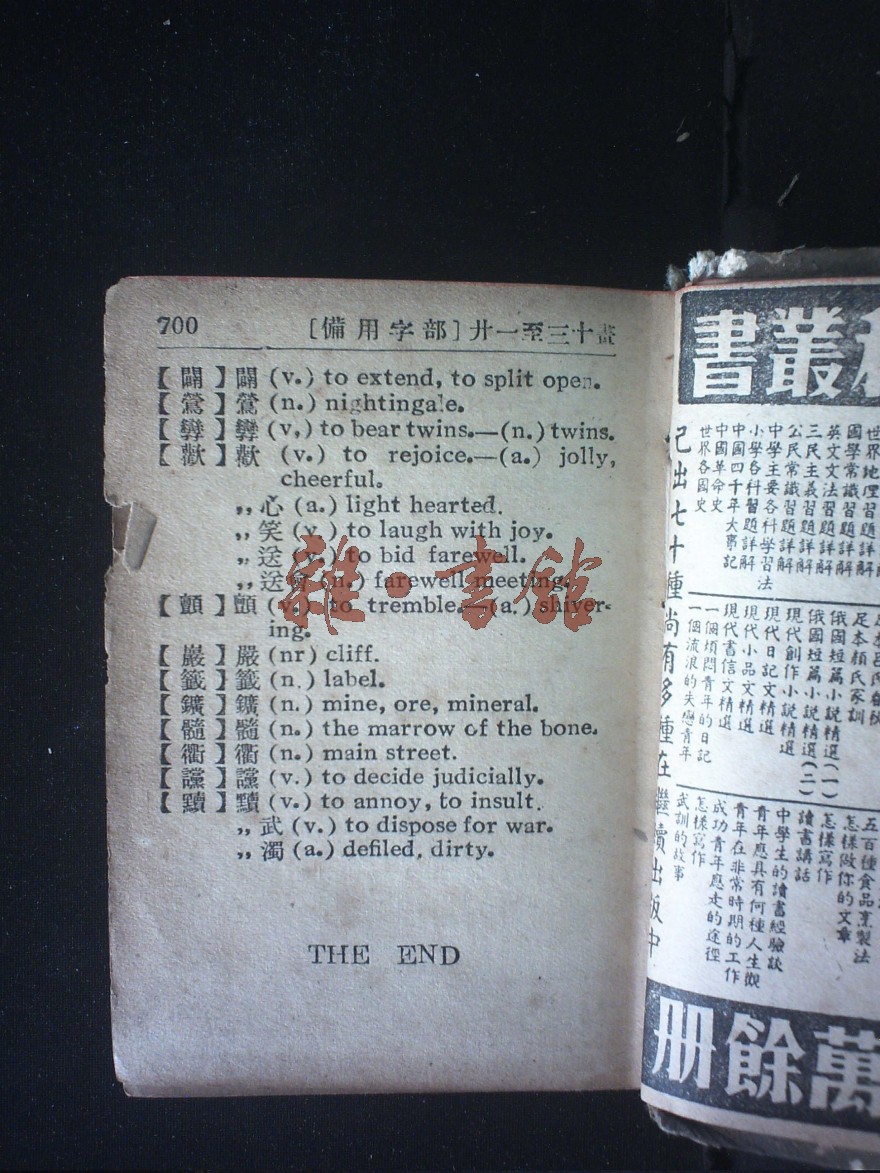 700
[備用字部]廾一至三十畫
【闢】闢 (v.) to extend, to split open.
【鶯】鶯 (n.) nightingale.
【孿】孿 (v,) to bear twins.—(n.) twins.
【歡】歡 (v.) to rejoice.—(a.) jolly,
cheerful.
,,心 (a.) light hearted.
,,笑 (v.) to laugh with joy.
,,送 (v.) to bid farewell.
,,送會 (n.) farewell meeting.
【顫】顫 (v.) to tremble.—(a.) shiver-
ing.
【巖】巖 (nr) cliff.
【籤】籤 (n.) label.
【鑛】鑛 (n.) mine, ore, mineral.
【髓】髓 (n.) the marrow of the bone.
【衢】衢 (n.) main street.
【讞】讞 (v.) to decide judicially.
【黷】黷 (v.) to annoy, to insult.
,,武 (v.) to dispose for war.
,,濁 (a.) defiled, dirty.
THE END
雜·書館
叢書
世界地理習題詳解
國學常識習題詳解
英文文法習題詳解
三民主義習題詳解
公民常識習題詳解
中學主要各科學習法
小學各科習題詳解
中國四千年大事記
中國革命史
世界各國史
足本顏氏家訓
俄國短篇小說精選(一)
俄國短篇小說精選(二)
現代創作小說精選
現代日記文精選
現代小品文精選
現代書信文精選
一個煩悶青年的日記
一個流浪的失戀青年
五百種食品烹製法
怎樣做你的文章
怎樣寫作
讀書講話
中學生的讀書經驗談
青年應具有何種人生觀
青年在非常時期的工作
成功青年應走的途徑
怎樣寫作
武訓的故事
已出七十種尚有多種在繼續出版中
萬餘册